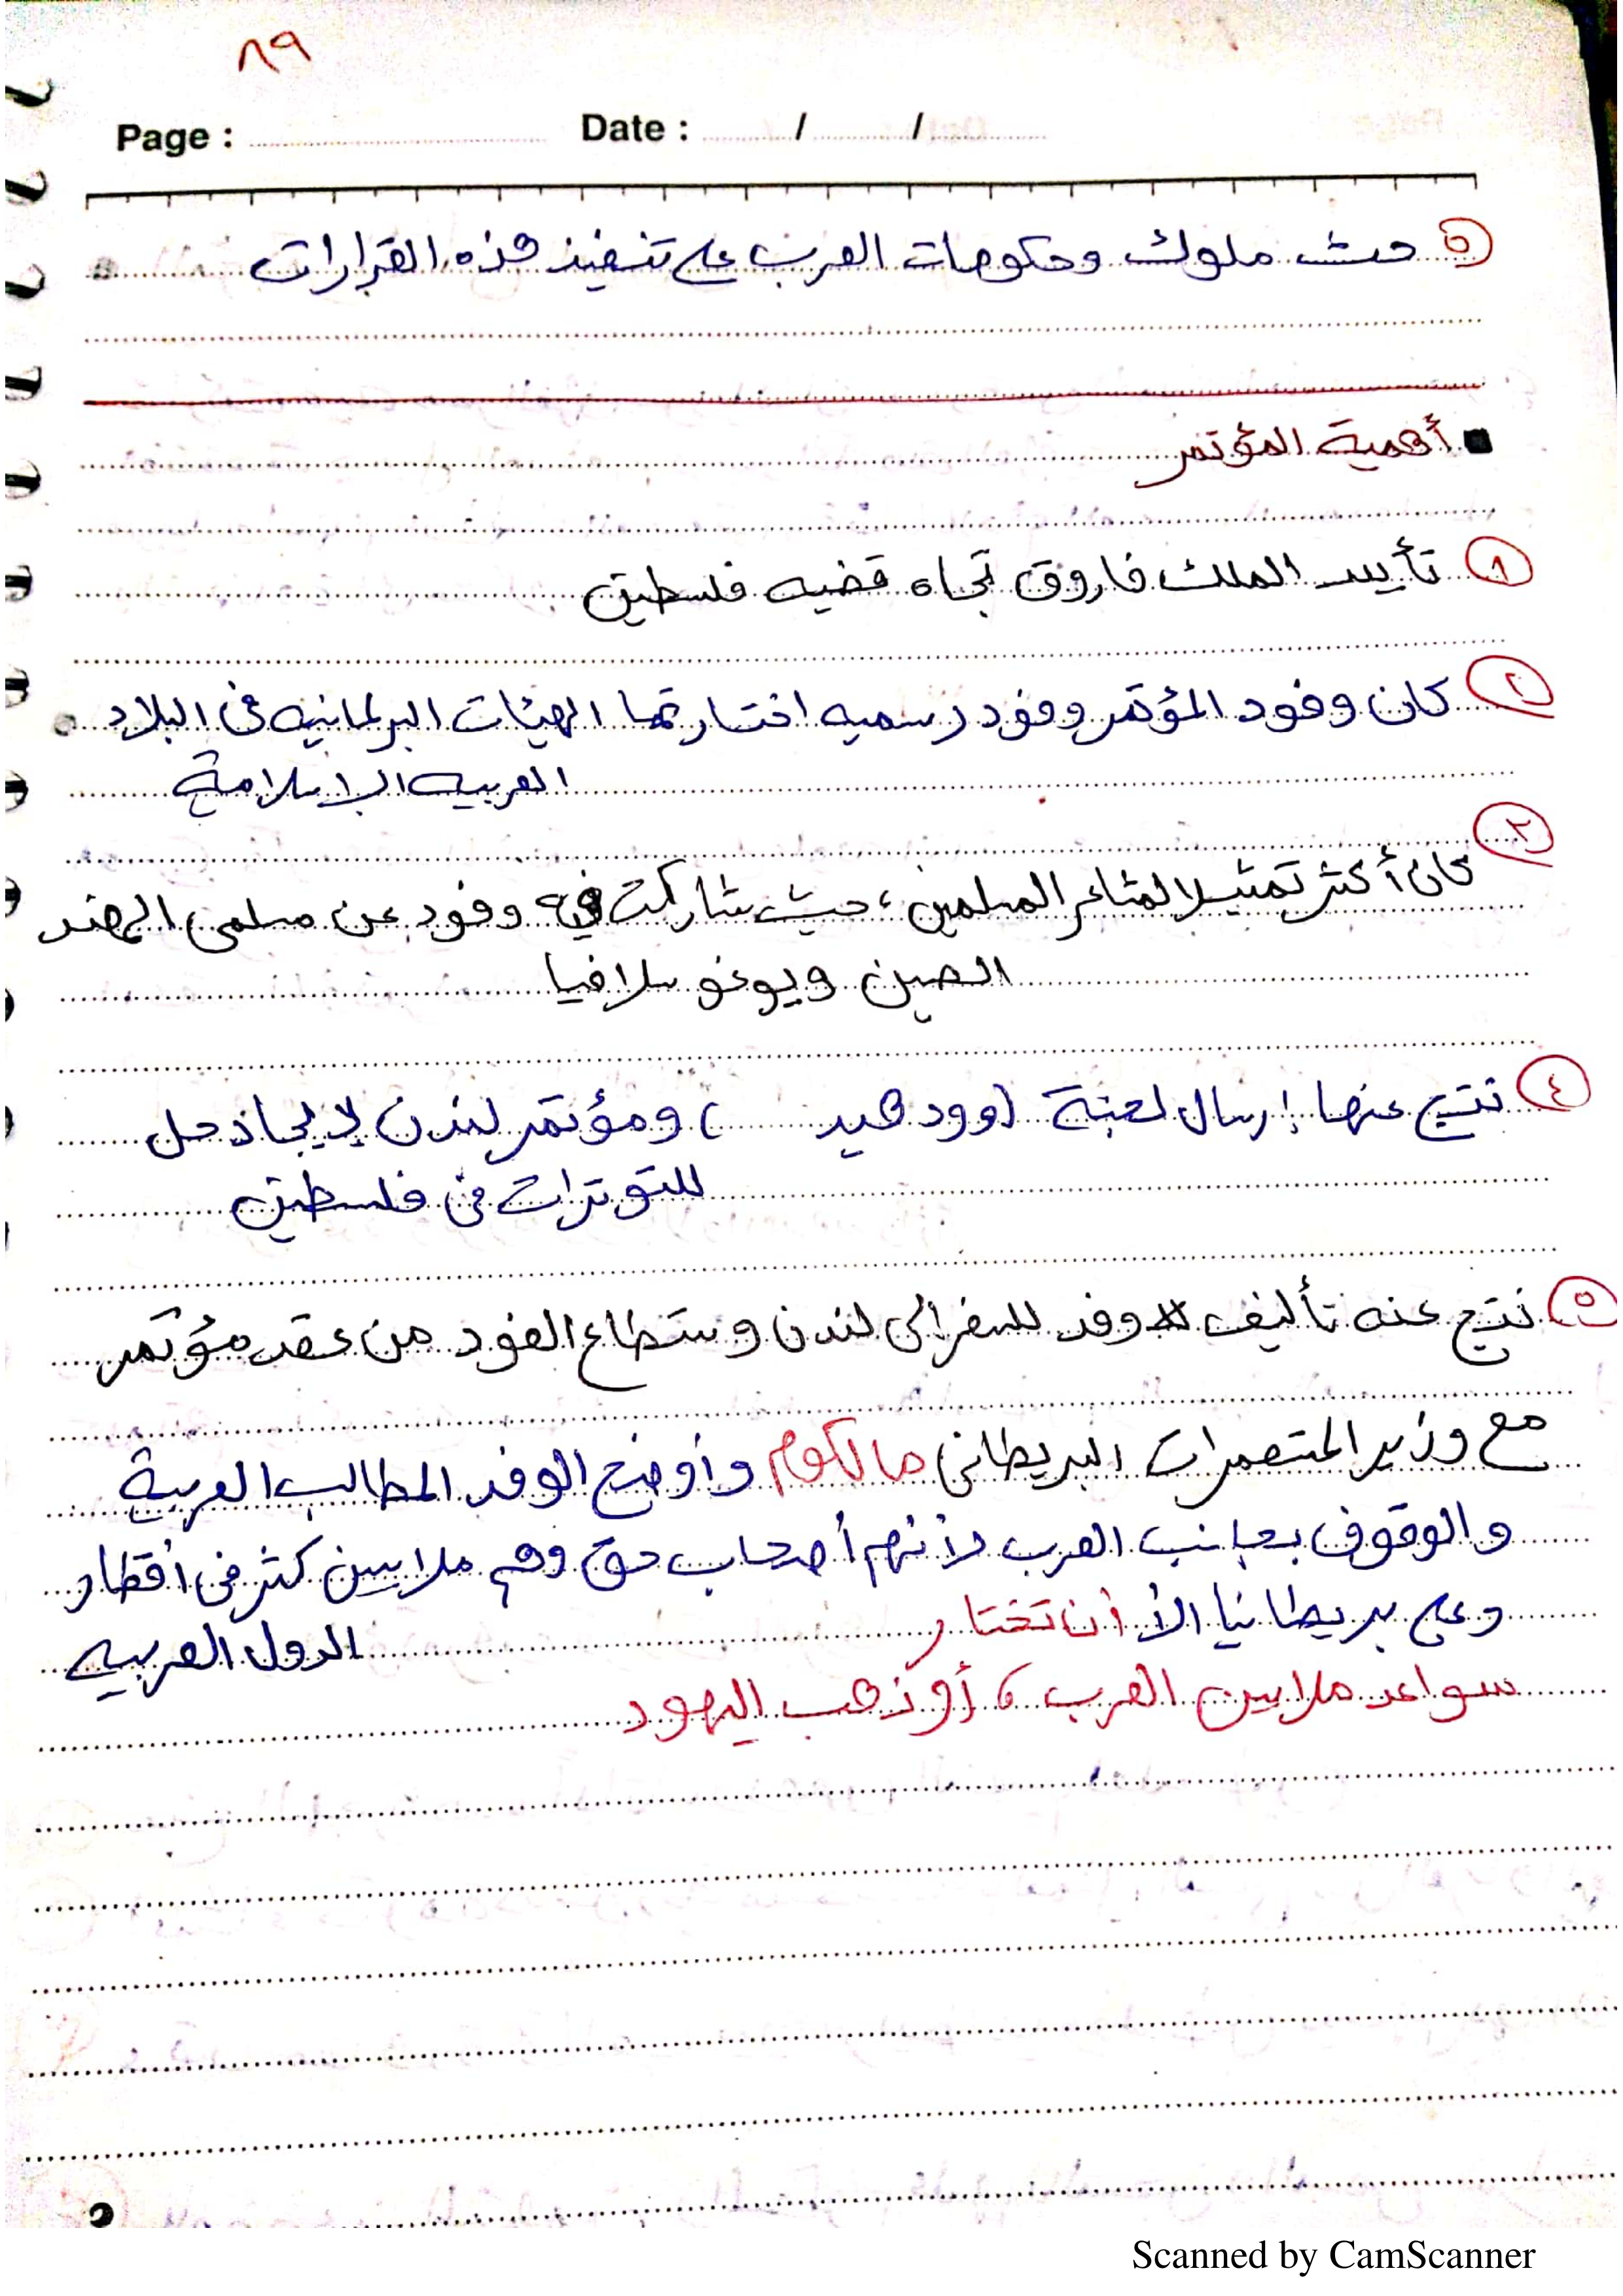 ٨٩
Page : Date : / /
٥ حث ملوك وحكومات العرب على تنفيذ هذه القرارات
أهمية المؤتمر
١ تأييد الملك فاروق تجاه قضيه فلسطين
٢ كان وفود المؤتمر وفود رسميه اختارتها الهيئات البرلمانيه فى البلاد
العربيه الإسلامية
٣ كان أكثر تمثيلا لمشاعر المسلمين، حيث شاركت فيه وفود عن مسلمى الهند
الصين ويوغوسلافيا
٤ نتج عنها إرسال لجنة (وودهيد ) ومؤتمر لندن لإيجاد حل
للتوترات فى فلسطين
٥ نتج عنه تأليف وفد للسفر إلى لندن وستطاع الفود من عقد مؤتمر
مع وزير المتعمرات البريطانى مالكوم وأوضح الوفد المطالب العربية
والوقوف بجانب العرب لأنهم أصحاب حق وهم ملايين كثر فى أقطار
الدول العربيه
وعلى بريطانيا الأ أن تختار
سواعد ملايين العرب، أو ذهب اليهود
Scanned by CamScanner